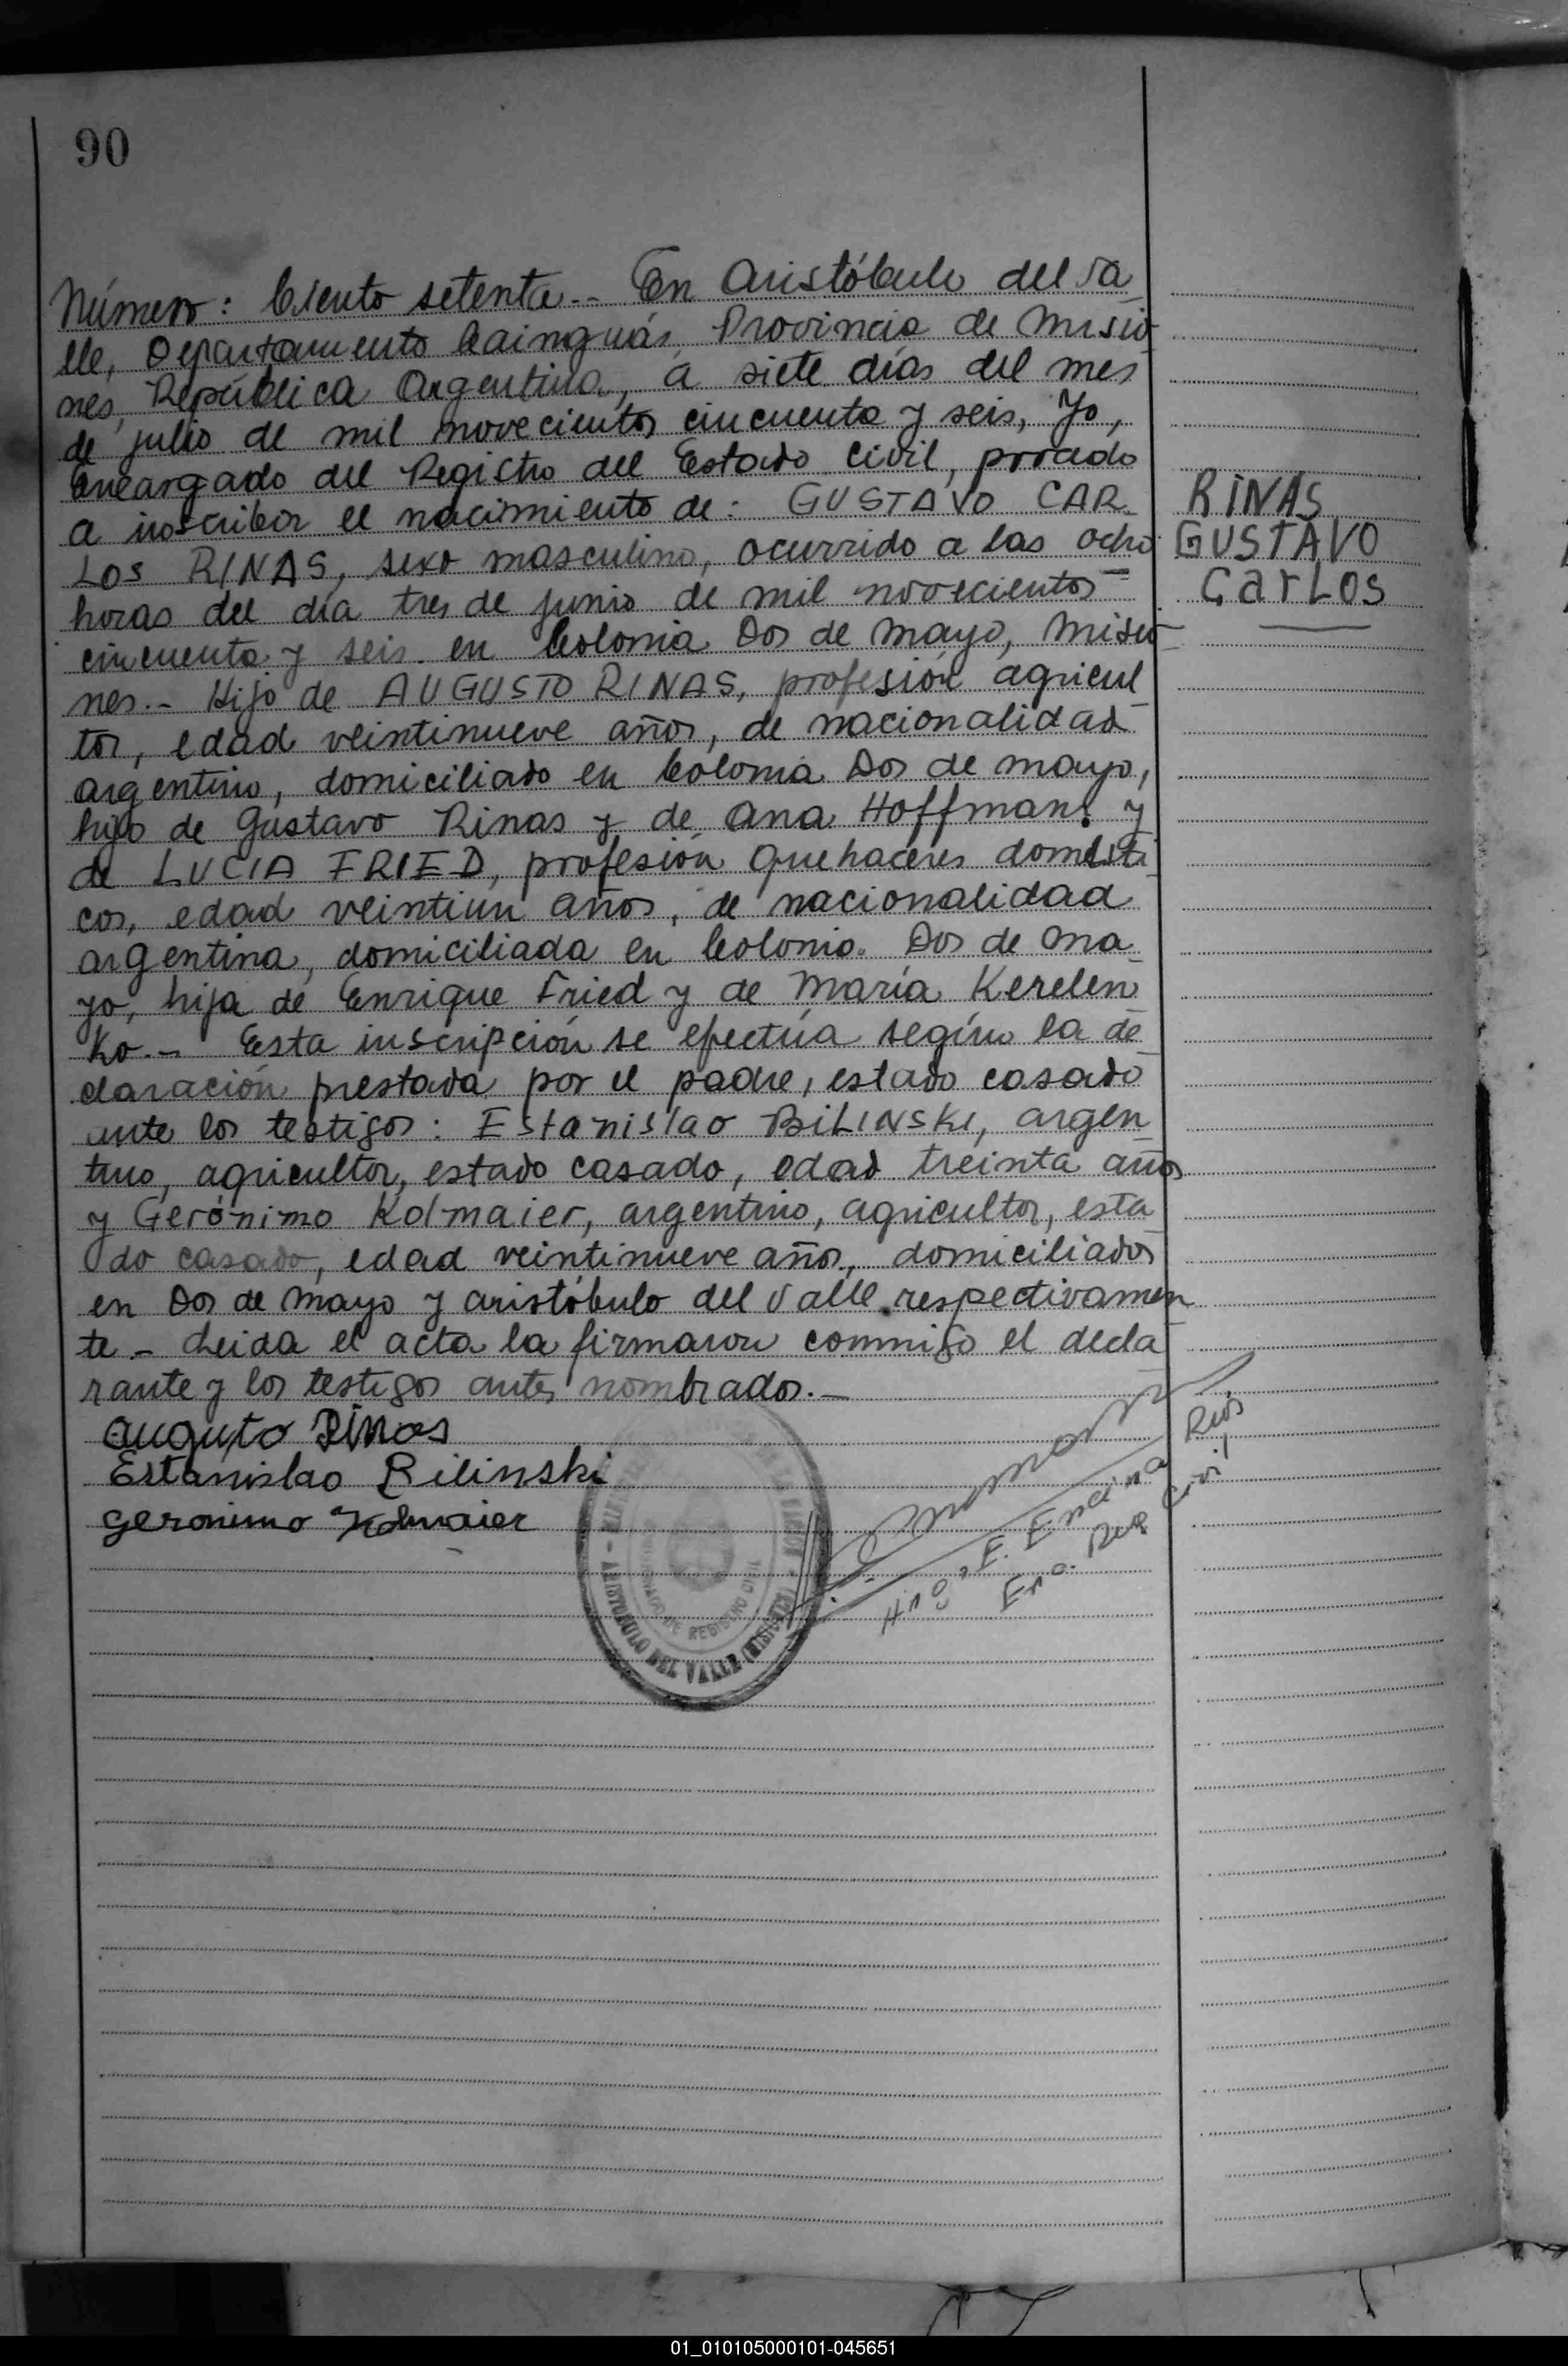 90
Número: Ciento setenta.- En Aristóbulo del Va
lle, Departamento Cainguás, Provincia de Misio
nes, República Argentina, a siete días del mes
de julio de mil novecientos cincuenta y seis, Yo,
Encargado del Registro del Estado Civil, procedo
a inscribir el nacimiento de: GUSTAVO CAR-
LOS RINAS, sexo masculino, ocurrido a las ocho
horas del día tres de junio de mil novecientos
cincuenta y seis en Colonia Dos de Mayo, Misio
nes.- Hijo de AUGUSTO RINAS, profesión agricul
tor, edad veintinueve años, de nacionalidad
argentino, domiciliado en Colonia Dos de mayo,
hijo de Gustavo Rinas y de Ana Hoffmann y
de LUCIA FRIED, profesión quehaceres domésti
cos, edad veintiun años, de nacionalidad
argentina, domiciliada en Colonia Dos de Ma
yo, hija de Enrique Fried y de María Kerelen
ko.- Esta inscripción se efectúa según la de
claración prestada por el padre, estado casado
ante los testigos: Estanislao BILINSKI, argen
tino, agricultor, estado casado, edad treinta años
y Gerónimo Kolmaier, argentino, agricultor, esta
do casado, edad veintinueve años, domiciliados
en Dos de Mayo y Aristóbulo del Valle respectivamen
te.- Leida el acta la firmaron conmigo el decla
rante y los testigos antes nombrados.-
RINAS
GUSTAVO
CarLos
Augusto Rinas
Estanislao Bilinski
Geronimo Kolmaier
E. Encina Rios
Enc. Reg Civil
ARISTOBULO DEL VALLE (MISIONES)
REGISTRO CIVIL
01_010105000101-045651